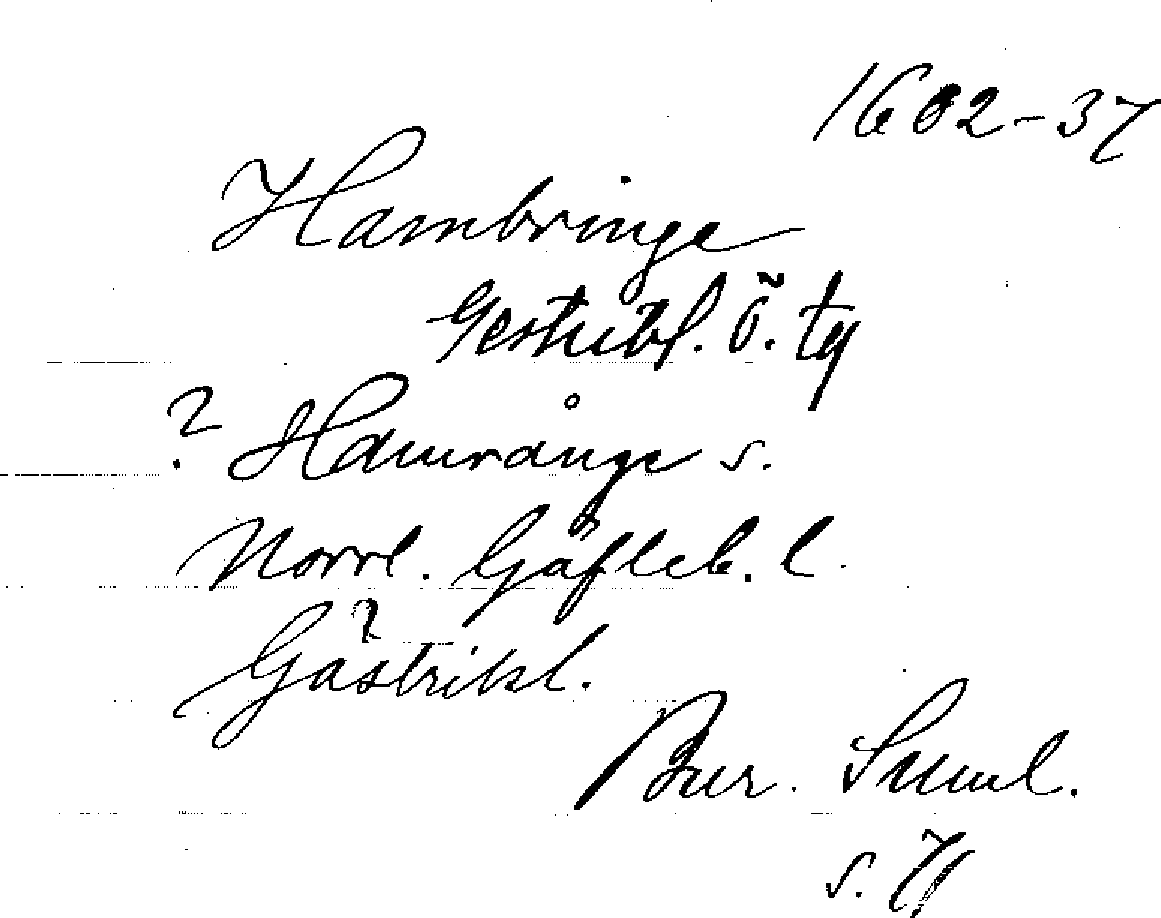 1602-37
Hambringe
Gestrikl. ö. tg
? Hamrånge s.
Norrl. Gäfleb. l.
Gästrikl.
Bur. Suml.
s.